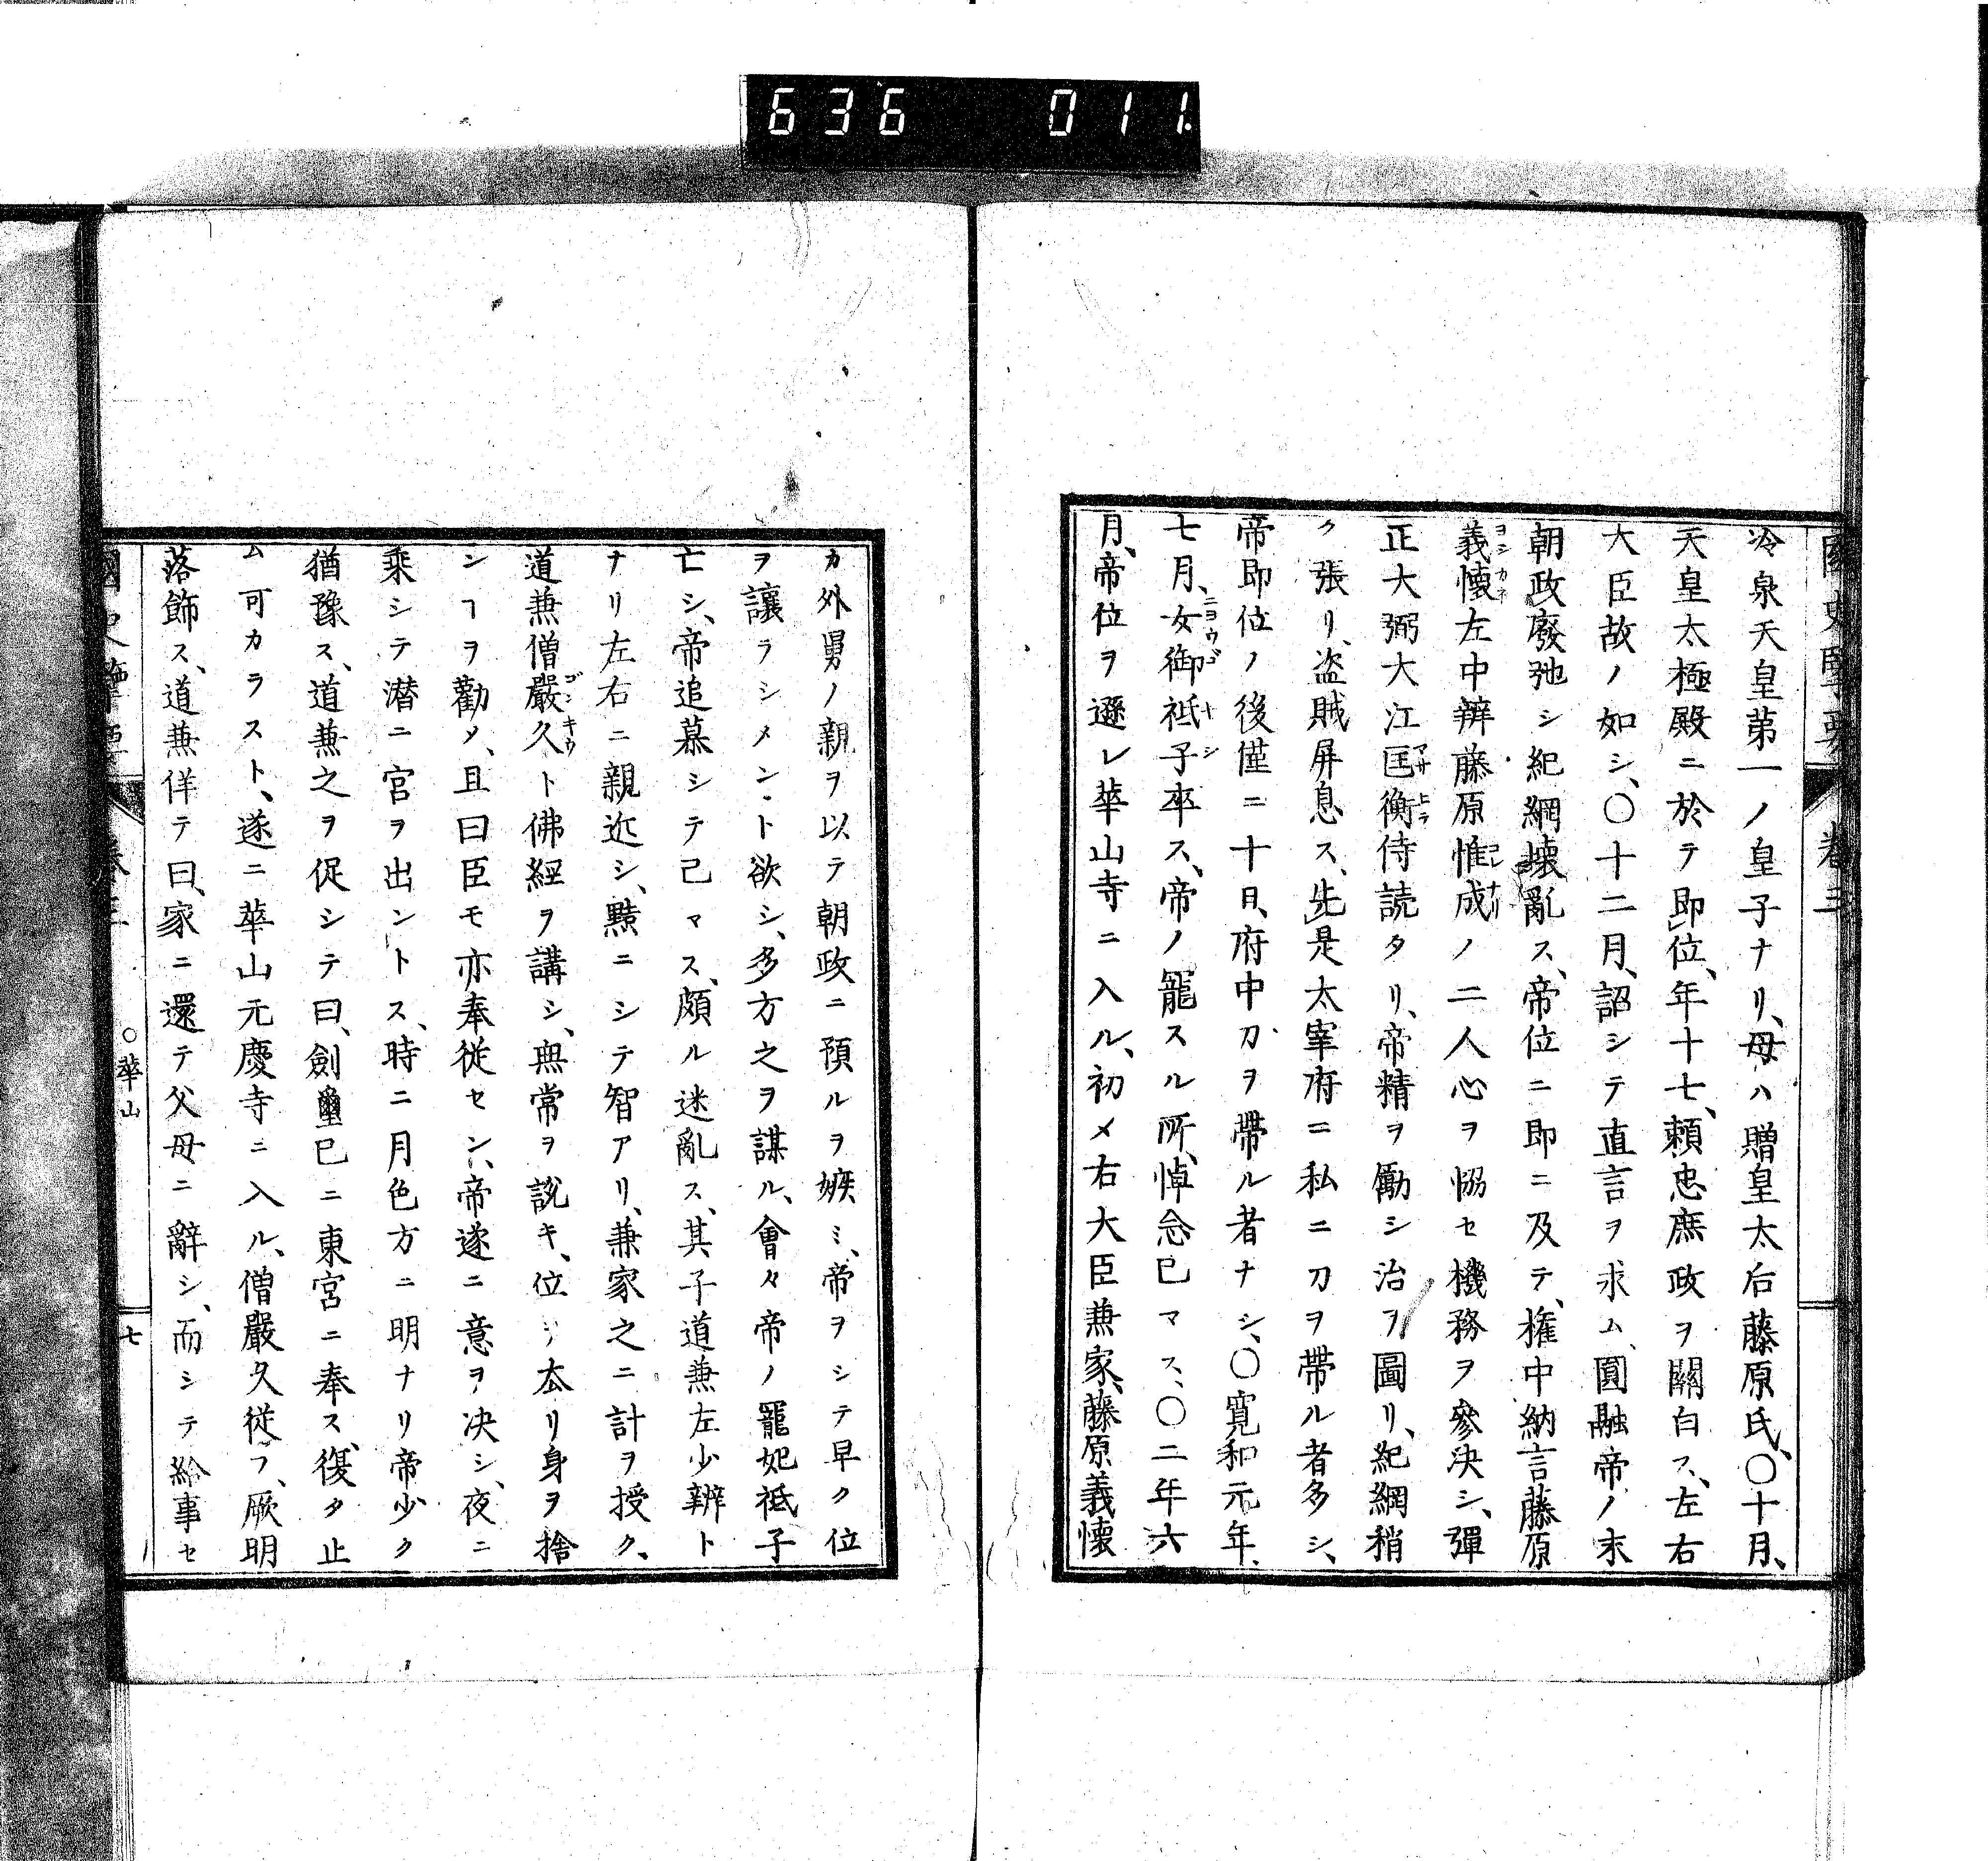 636 011
冷泉天皇第一ノ皇子ナリ、母ハ贈皇太后藤原氏、〇十月、
天皇太極殿ニ於テ即位、年十七、頼忠庶政ヲ關白ス、左右
大臣故ノ如シ、〇十二月、詔シテ直言ヲ求ム、圓融帝ノ末
朝政廢弛シ紀綱壊亂ス、帝位ニ即ニ及テ、權中納言藤原
義懐左中辨藤原惟成ノ二人心ヲ恊セ機務ヲ參決シ、彈
正大弼大江匡衡侍読タリ、帝精ヲ勵シ治ヲ圖リ、紀綱稍
ク張リ、盗賊屏息ス、先是太宰府ニ私ニ刀ヲ帶ル者多シ、
帝即位ノ後僅ニ十日、府中刀ヲ帶ル者ナシ、〇寛和元年、
七月、女御祗子卒ス、帝ノ寵スル所、悼念已マス、〇二年六
月、帝位ヲ遜レ華山寺ニ入ル、初メ右大臣兼家、藤原義懐
カ外舅ノ親ヲ以テ朝政ニ預ルヲ嫉ミ、帝ヲシテ早ク位
ヲ讓ラシメント欲シ、多方之ヲ謀ル、會々帝ノ寵妃祗子
亡シ、帝追慕シテ已マス、頗ル迷亂ス、其子道兼左少辨ト
ナリ左右ニ親近シ、黠ニシテ智アリ、兼家之ニ計ヲ授ク、
道兼僧嚴久ト佛經ヲ講シ、無常ヲ説キ、位ヲ去リ身ヲ捨
シヿヲ勸メ、且曰臣モ亦奉從セン、帝遂ニ意ヲ決シ、夜ニ
乘シテ潜ニ宮ヲ出ントス、時ニ月色方ニ明ナリ帝少ク
猶豫ス、道兼之ヲ促シテ曰、劍璽已ニ東宮ニ奉ス、復タ止
ム可カラスト、遂ニ華山元慶寺ニ入ル、僧嚴久從フ、厥明
落飾ス、道兼佯テ曰、家ニ還テ父母ニ辭シ、而シテ給事セ
〇華山
七